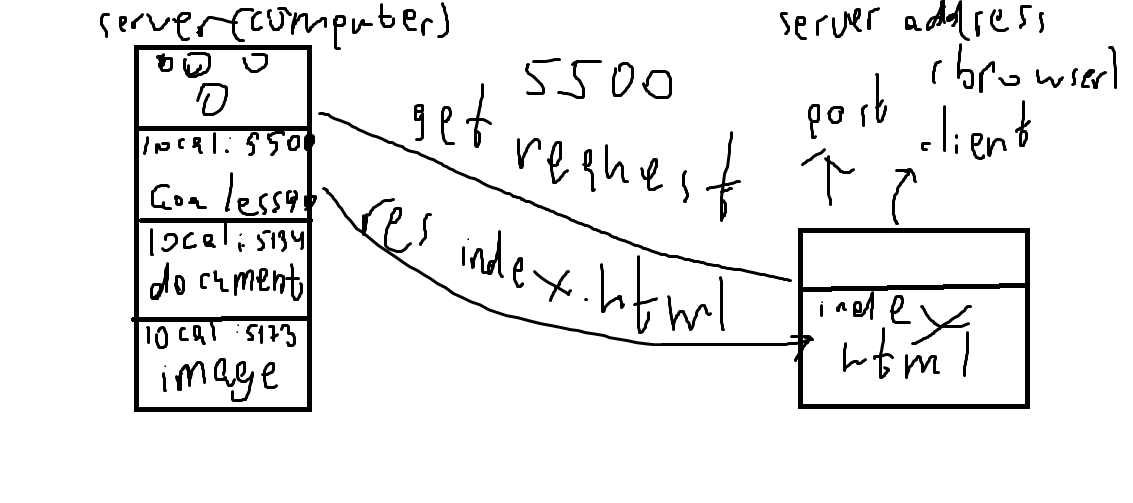 server(computer)
local:5500
local:5194
document
local:5173
image
5500
get
request
res index.html
server address
(browser)
port
client
index
html